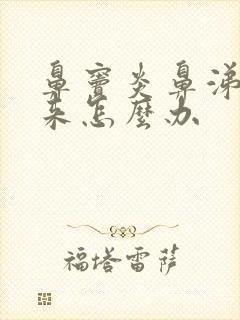 鼻窦炎鼻涕
来怎麼办
福塔雷萨